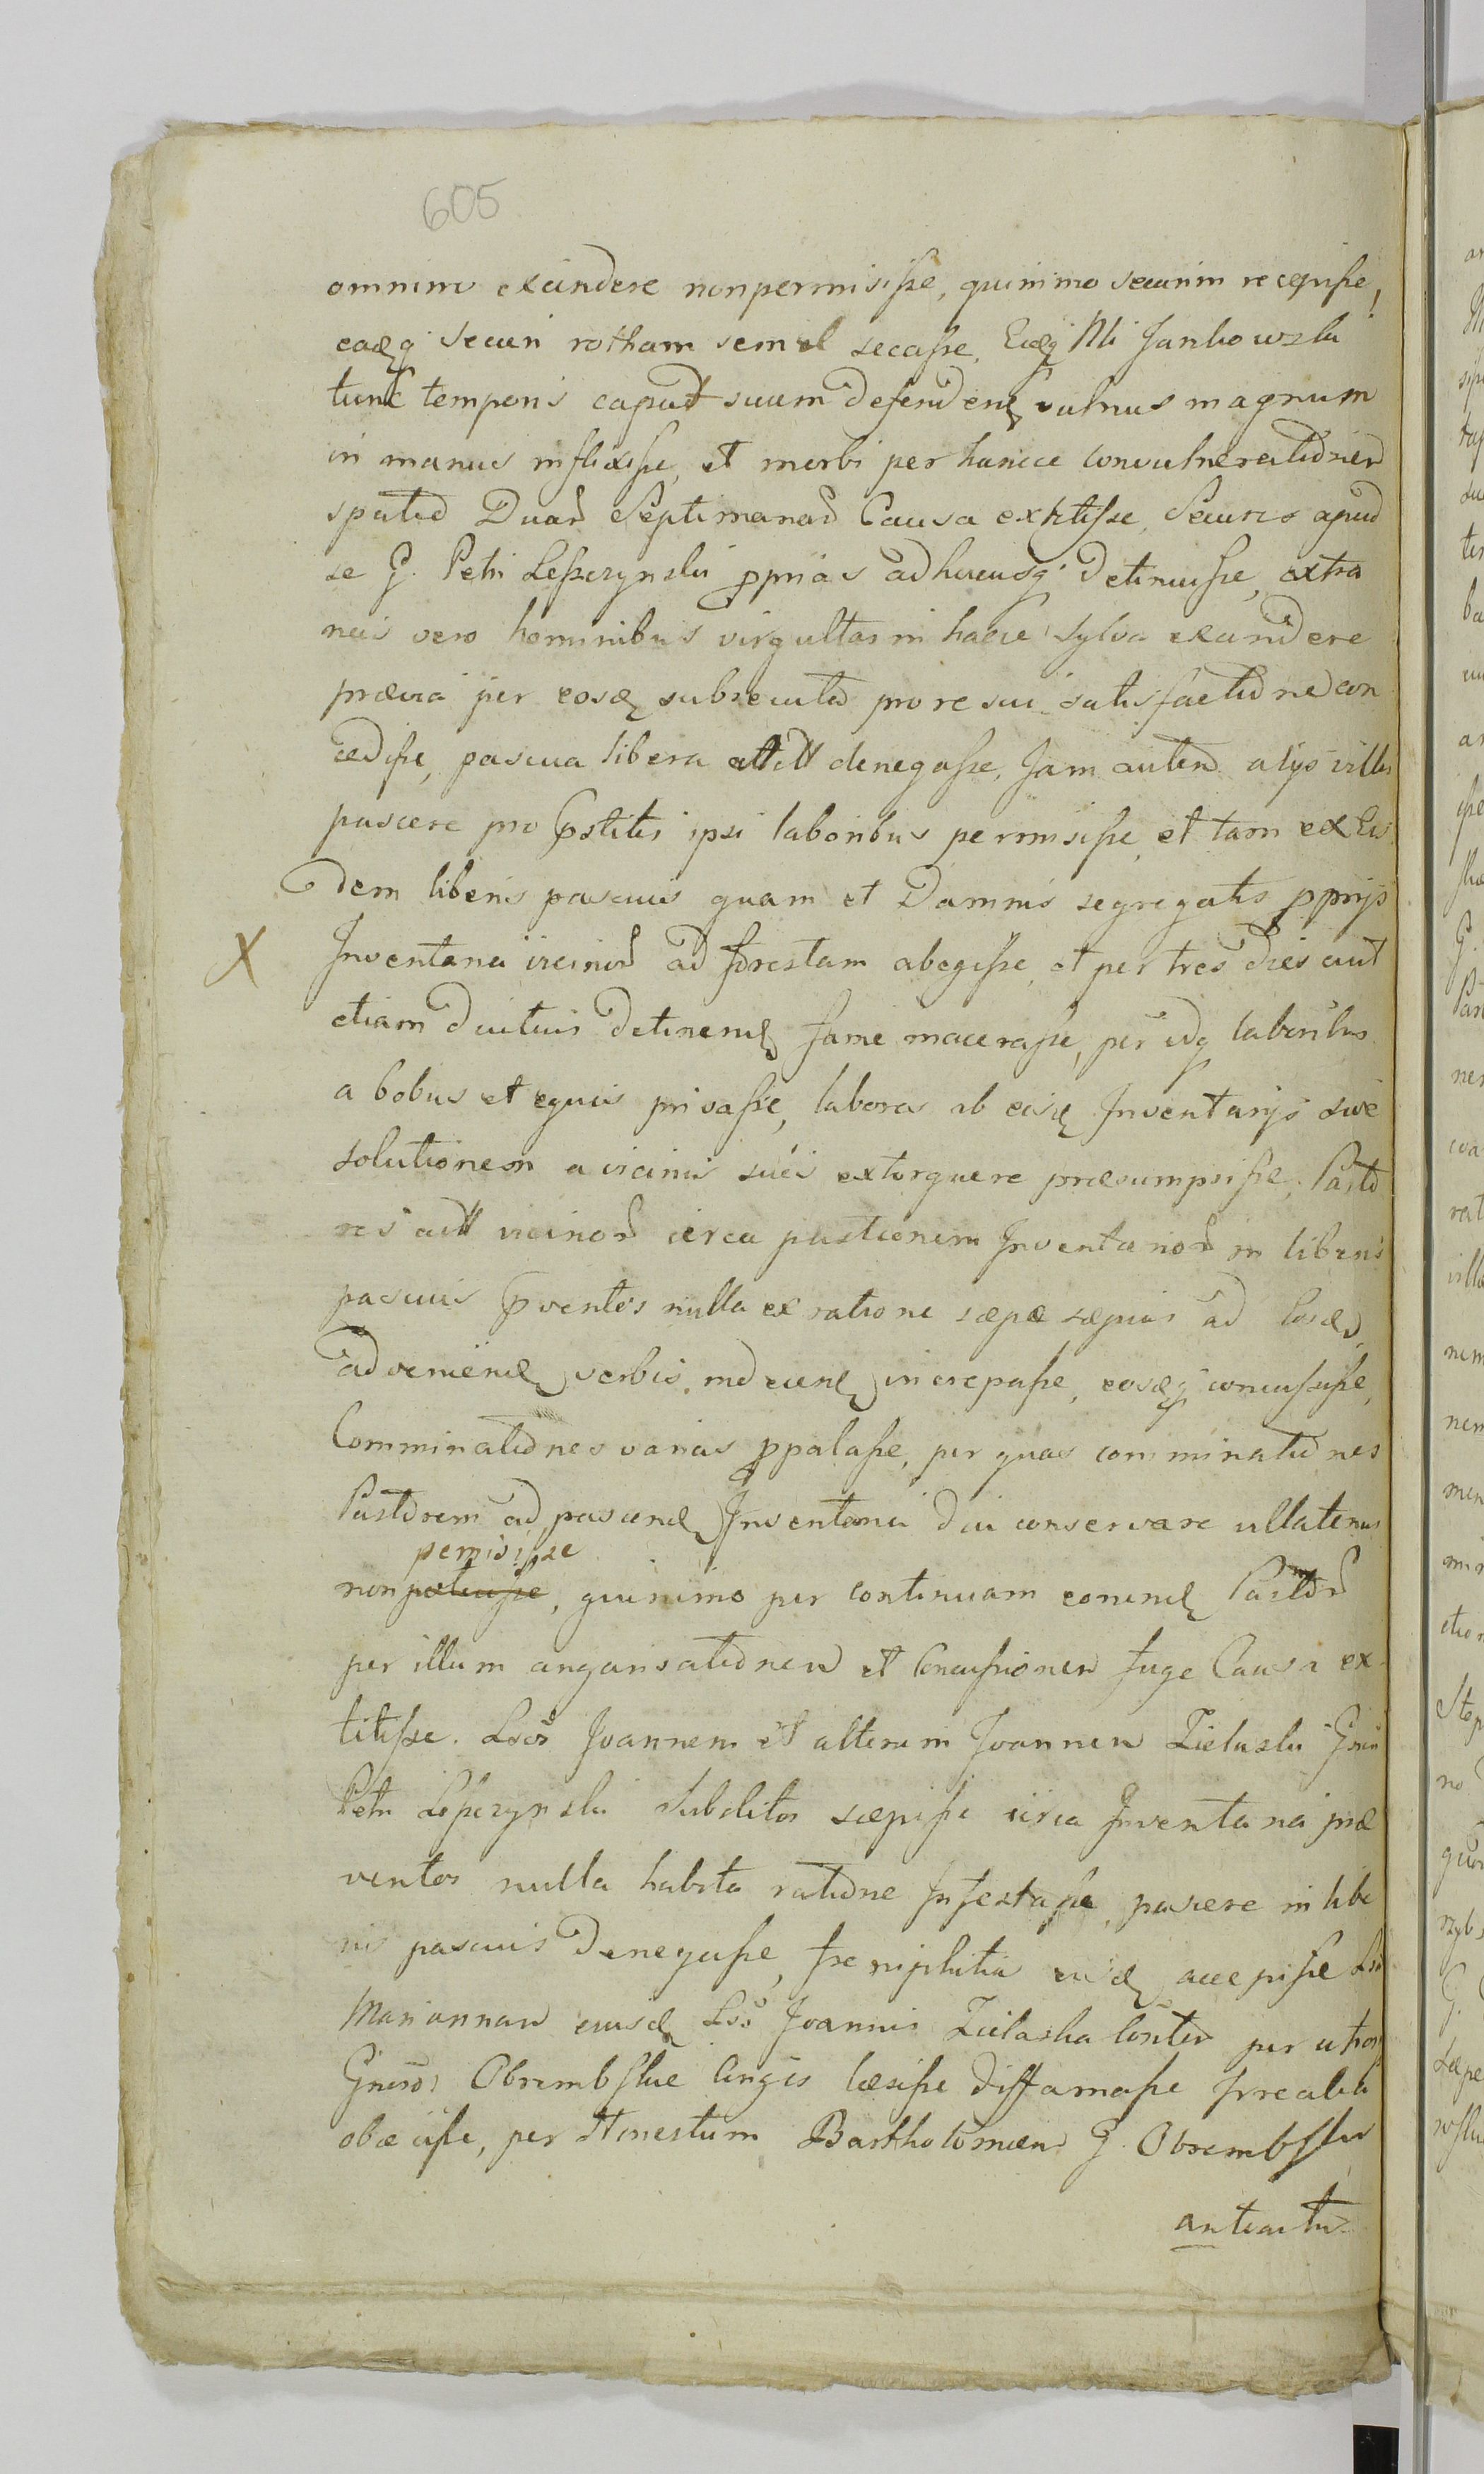 605
omnino excindere non permisisse, quinimo securim recepisse,
eadq securi rotham semel secasse, Eidq Mli Jankowski
tunc temporis caput suum defendend vulnus magnum
in manus inflixisse, et morbi per hancce convulnerationem
spatio Duar Septimanar Causa extitisse, Secures apud
se G. Petri Lesczynski pprias adhucusq detinuisse, extra
neis vero hominibus virgultas in hacce sylva excindere
prævia per eosd subsecuta pro re sui satisfactione con
cedisse, pascua libera denegasse, Jam autem alijs villis
pascere pro pstitis ipsi laboribus permisisse, et tam ex Eis
dem liberis pascuis quam et Damnis segregatis pprijs
X Inventaria vicinor ad forestam abegisse, et per tres dies aut
etiam diutius detinend fame macerasse, per idq laboribus
a bobus et equis privasse, labores ab eisd Inventarijs sive
solutionem a vicinis suis extorquere præsumpsisse, Pasto
res vicinor circa pastionem Inventarior in liberis
pascuis pventos nulla ex ratione sæpe sæpius ad Eosd
adveniend verbis increpasse, eosdq concussisse,
Comminationes varias ppalasse, per quas comminationes
Pastorem ad pascend Inventaria diu conservare ullatenus
permisisse
non potuisse, quinimo per continuam eorund Pastor
per illum angarisationem et Concussionem fuge Causa ex
titisse. Lbos Joannem et alterum Joannem Zielaski Gnsi
Petri Lesczynski Subditos sæpisse circa Inventaria præ
ventos nulla habita ratione Infestasse, pascere in libe
ris pascuis denegasse, eisd accepisse Lb
Mariannam eiusd Lbs Joannis Zielaska Conster per utros
Gnesos Obrembskie læsisse diffamasse
per Honestum Bartholomæum G. Obrembski
anteacta